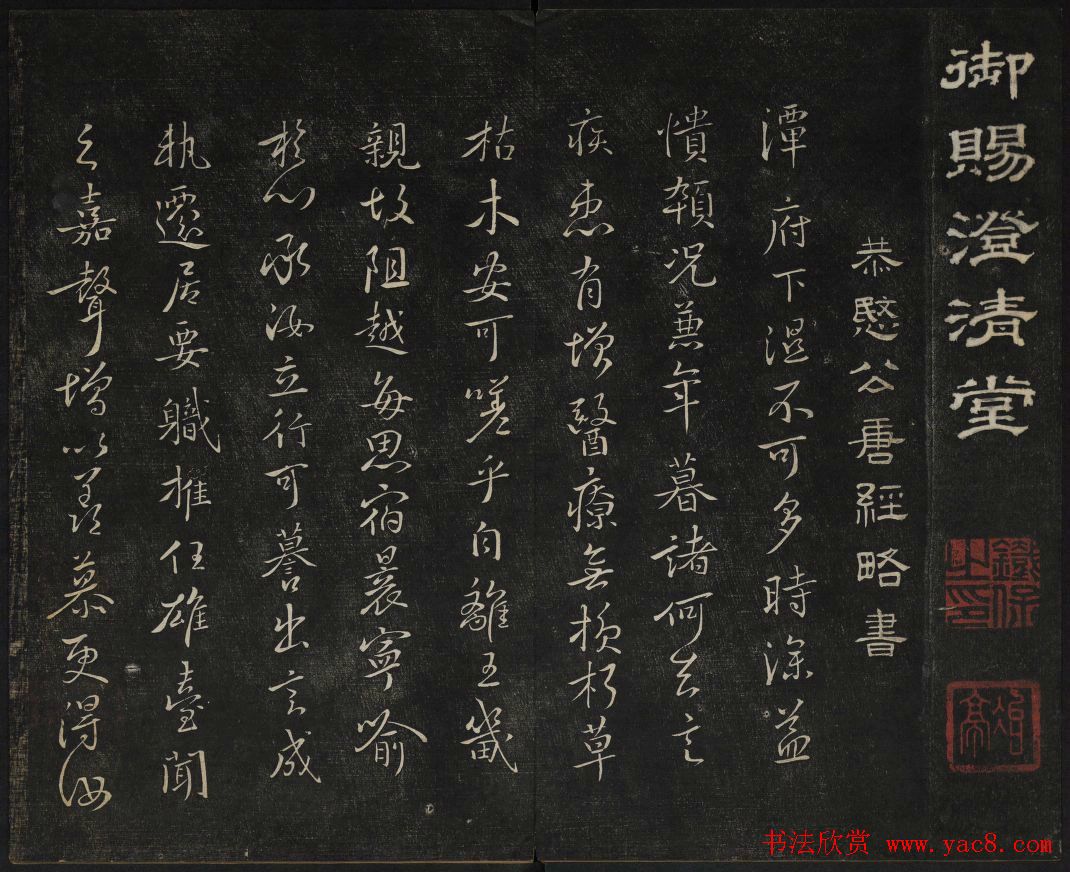 御賜澄清堂
恭愍公唐經略書
潭府下濕不可多時深益
憒頓況兼年暮諸何云言
疾患有增醫療無損朽草
枯木安可嗟乎自離王畿
親故阻越每思宿昔寧喻
於心承汝立行可譽出言成
執遷居要職擢任雄臺聞
之嘉聲增以羨慕更得汝
書法欣赏 www.yac8.com